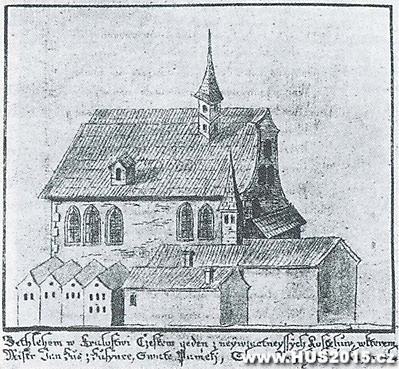 Bethlehem w Kralostwi Czeskem geden z neywzactneyssých Kostelůw, w kterem
Mistr Jan Hus z Husynce, Swate Pamieti,
www.HUS2015.cz